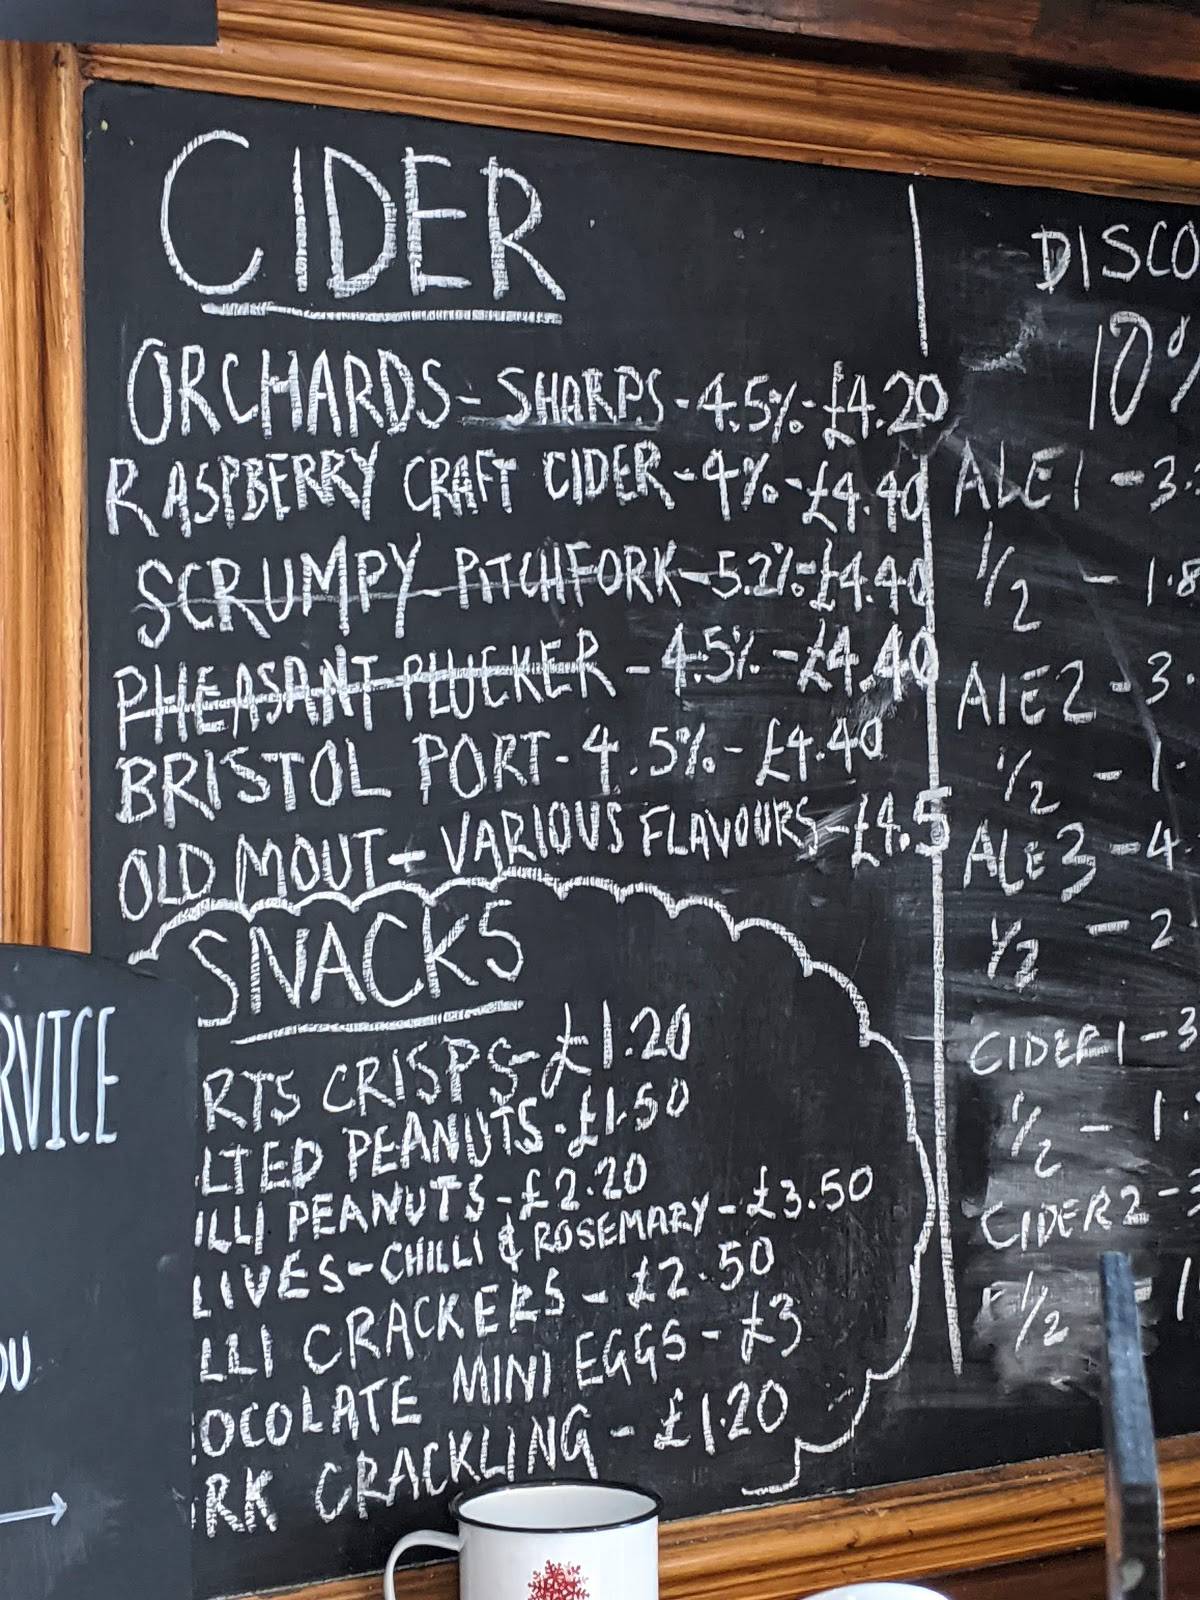 CIDER
ORCHARDS - SHARPS - 4.5% - £4.20
RASPBERRY CRAFT CIDER - 4% - £4.40
SCRUMPY PITCHFORK - 5.2% - £4.40
PHEASANT PLUCKER - 4.5% - £4.40
BRISTOL PORT - 4.5% - £4.40
OLD MOUT - VARIOUS FLAVOURS - £4.5
SNACKS
RTS CRISPS - £1.20
LTED PEANUTS - £1.50
ILLI PEANUTS - £2.20
LIVES - CHILLI & ROSEMARY - £3.50
LLI CRACKERS - £2.50
OCOLATE MINI EGGS - £3
RK CRACKLING - £1.20
DISCO
10%
ALE 1 - 3.
1/2 - 1.8
ALE 2 - 3.
1/2 - 1.
ALE 3 - 4.
1/2 - 2
CIDER 1 - 3
1/2 - 1.
CIDER 2 -
1/2 - 1
RVICE
OU